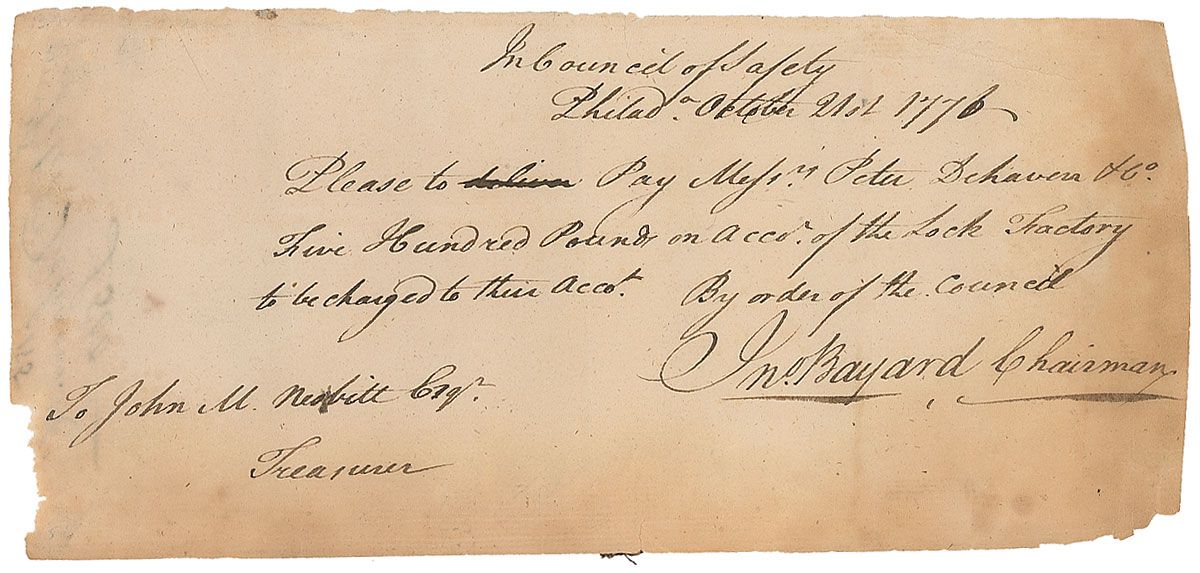 In Council of Safety
Philad.ᵃ October 21st 1776
Please to deliver Pay Messrˢ Peter Dehaven & Cº.
Five Hundred Pounds on Accoᵗ. of the Lock Factory
to be charged to their Accoᵗ. By order of the Council
Jnº. Bayard Chairman
To John M. Nesbitt Esqʳ.
Treasurer